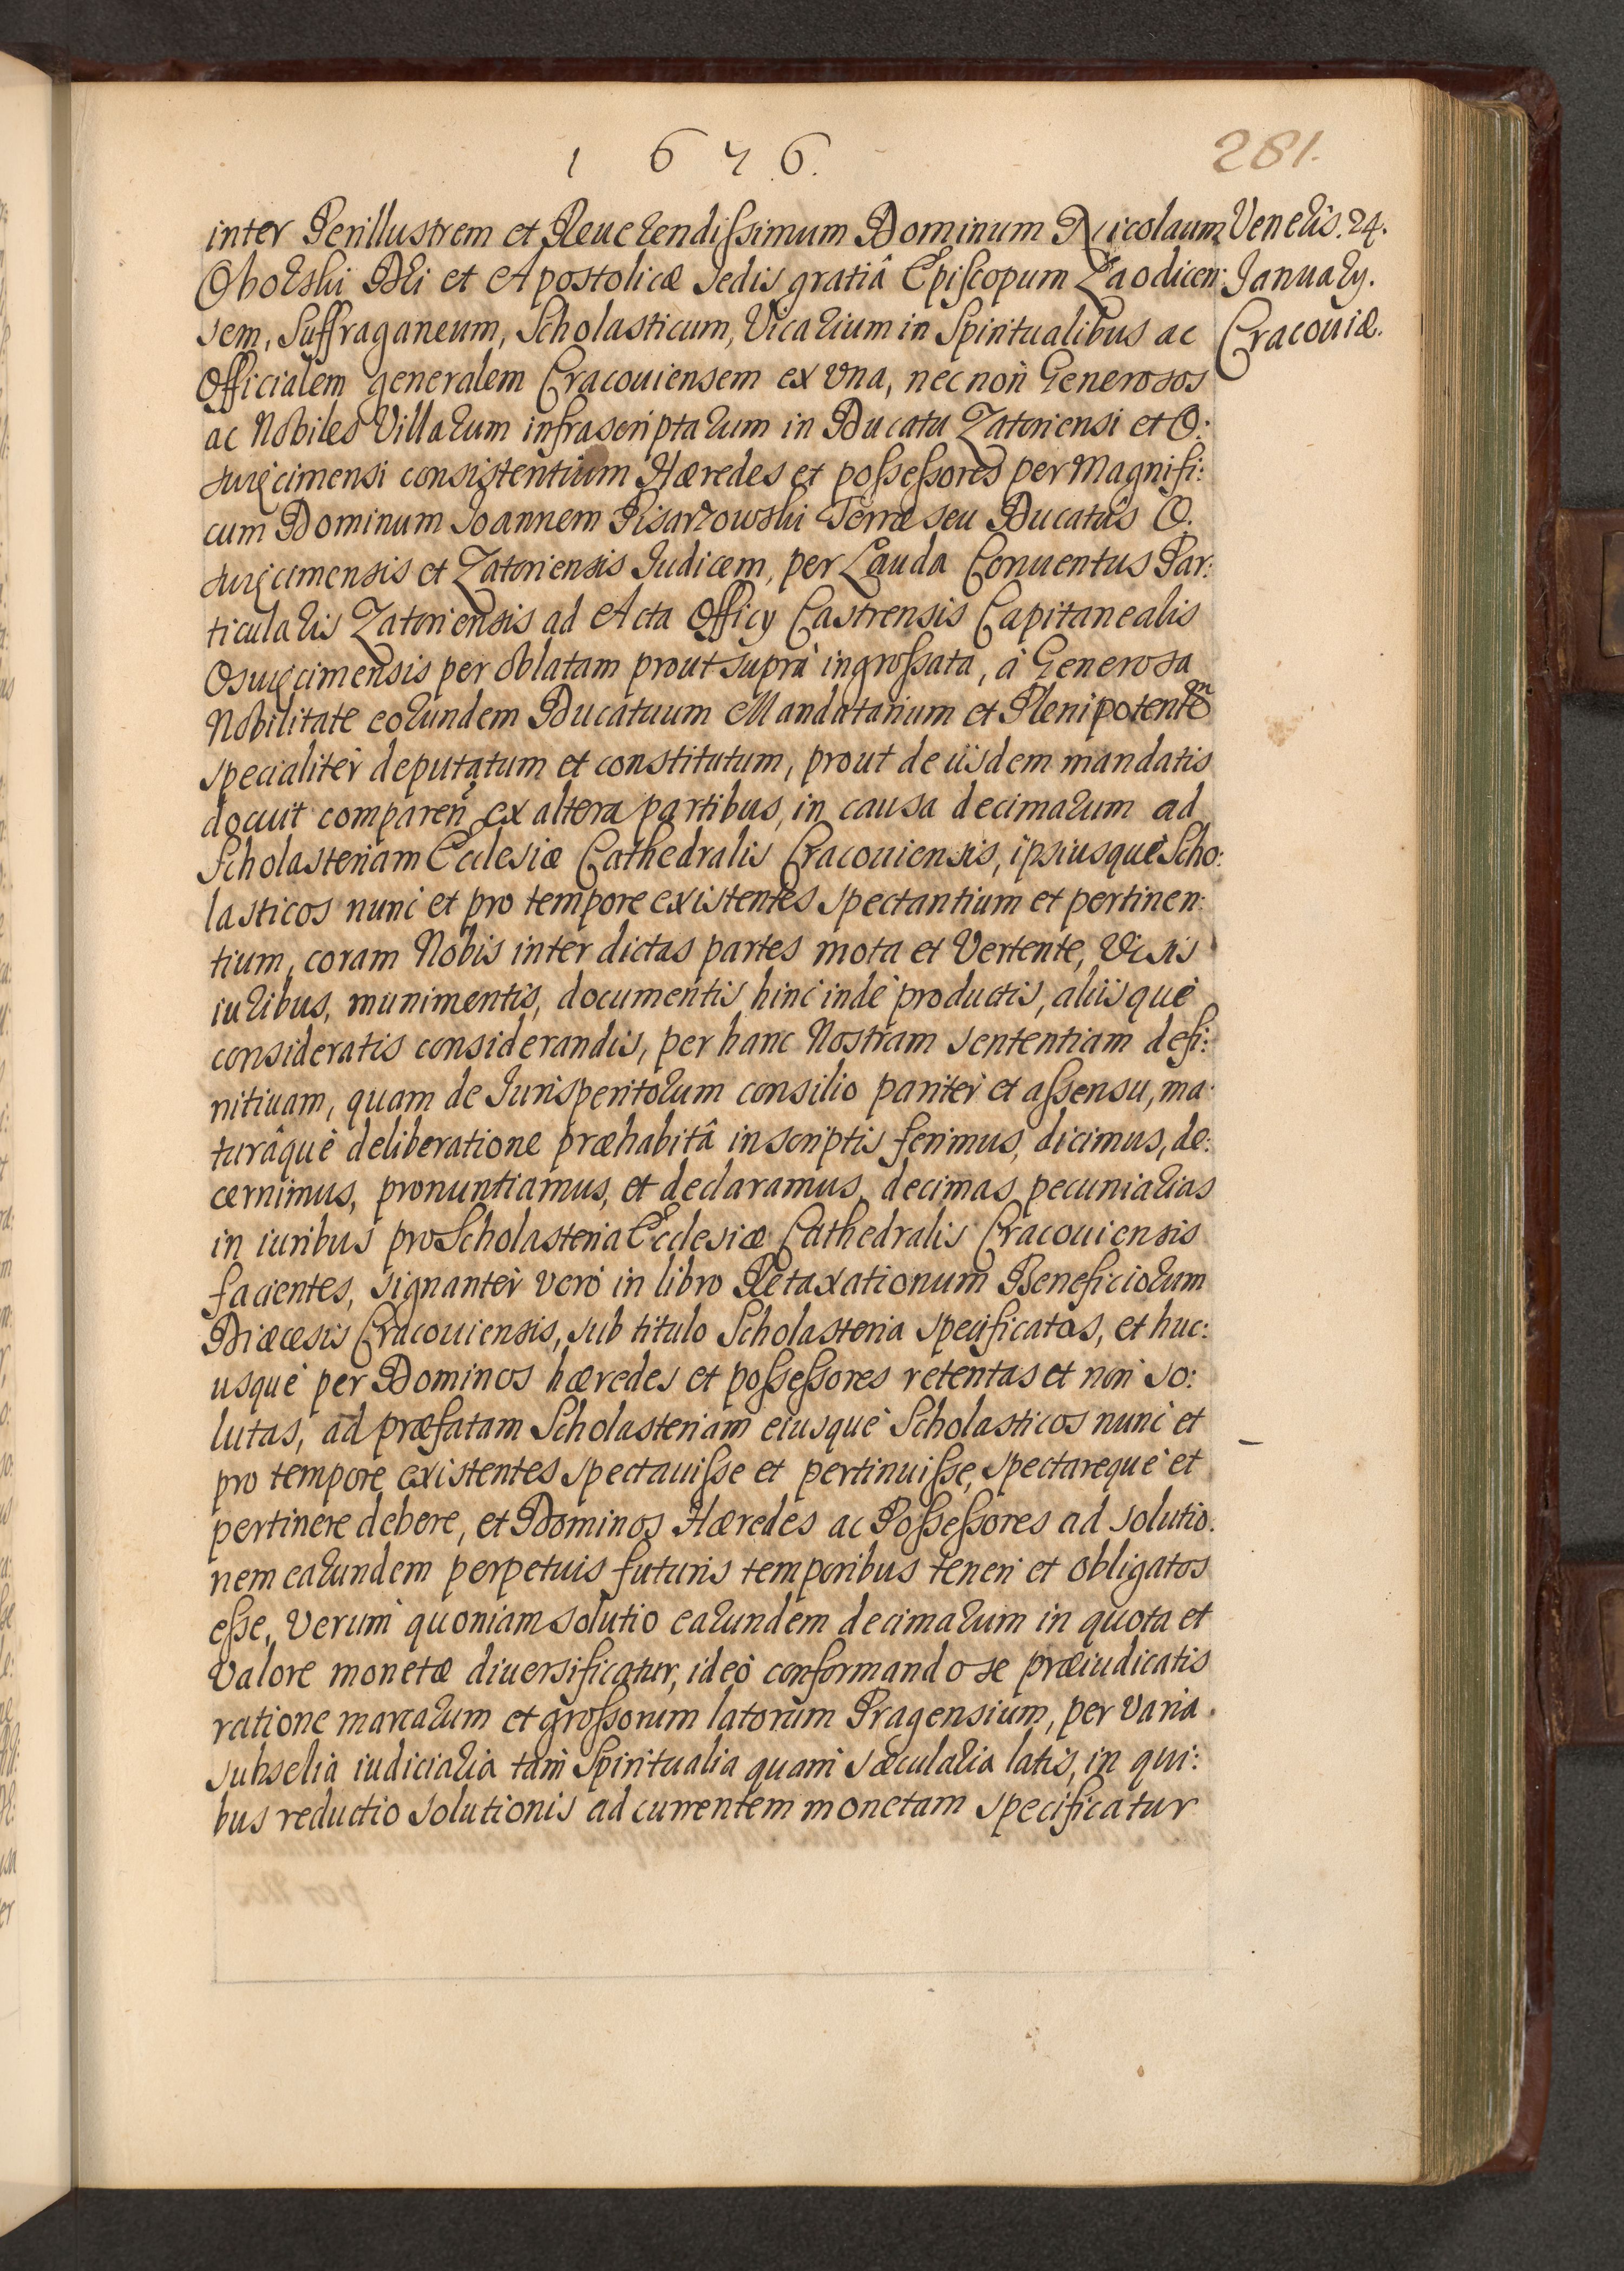 1676.
281.
inter Perillustrem et Reuerendissimum Dominum Nicolaum
Oborski Dei et Apostolicæ Sedis gratiâ Episcopum Laodicen:
sem, Suffraganeum, Scholasticum, Vicarium in Spiritualibus ac
Officialem generalem Cracouiensem ex vna, nec non Generosos
ac Nobiles Villarum infrascriptarum in Ducatu Zatoriensi et O:
swięcimensi consistentium Hæredes et possessores per Magnifi:
cum Dominum Joannem Pisarzowski Terræ seu Ducatûs O.
swięcimensis et Zatoriensis Iudicem, per Lauda Conuentus Par:
ticularis Zatoriensis ad Acta Officij Castrensis Capitanealis
Oswięcimensis per oblatam prout suprà ingrossata, à Generosa
Nobilitate eorundem Ducatuum Mandatarium et Plenipotentẽ
specialiter deputatum et constitutum, prout de iisdem mandatis
docuit comparen̄, ex altera partibus, in causa decimarum ad
Scholasteriam Ecclesiæ Cathedralis Cracouiensis, ipsiusquè Scho:
lasticos nunc et pro tempore existentes spectantium et pertinen:
tium, coram Nobis inter dictas partes mota et Vertente, Visis
iuribus, munimentis, documentis hinc inde productis, aliisquè
consideratis considerandis, per hanc Nostram sententiam defi:
nitiuam, quam de Iurisperitorum consilio pariter et assensu, ma:
turâquè deliberatione præhabitâ in scriptis ferimus, dicimus, de:
cernimus, pronuntiamus, et declaramus, decimas pecuniarias
in iuribus pro Scholasteria Ecclesiæ Cathedralis Cracouiensis
facientes, signanter verò in libro Retaxationum Beneficiorum
Diæcesis Cracouiensis, sub titulo Scholasteria specificatas, et huc:
usquè per Dominos hæredes et possessores retentas et non so:
lutas, ad præfatam Scholasteriam eiusquè Scholasticos nunc et
pro tempore existentes spectauisse et pertinuisse, spectarequè et
pertinere debere, et Dominos Hæredes ac Possessores ad solutio.
nem earundem perpetuis futuris temporibus teneri et obligatos
esse, Verum quoniam solutio earundem decimarum in quota et
Valore monetæ diuersificatur, ideò conformando se præiudicatis
ratione marcarum et grossorum latorum Pragensium, per varia
subselia iudiciaria tam Spiritualia quam sæcularia latis, in qui:
bus reductio solutionis ad currentem monetam specificatur
Veneris. 24.
Ianuarij.
Cracouiæ.